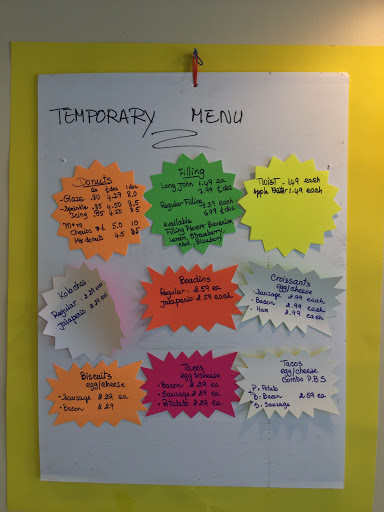 TEMPORARY MENU
Donuts
ea ½ doz 1 doz
- Glaze .80 4.29 8.0
- Sprinkle .85 4.50 8.5
Icing .85 4.50 8.5
5.0 10
4.5 8.5
Filling
Long John 1.49 ea
7.99 ½ dz
Regular Filling
6.99 ½ dz
Available
Filling Flavors Bavarian
Lemon, Strawberry
Blueberry
TWIST - 1.49 each
Apple 1.49 each
Kolaches
Regular - 2.29 ea
Jalapeño 2.29 ea
Boudins
Regular - 2.59 ea
Jalapeño 2.59 each
Croissants
egg/cheese
- Sausage 2.99 each
- Bacon 2.99 each
- Ham 2.99
Biscuits
egg/cheese
- Sausage 2.29 ea
- bacon 2.29
Tacos
egg & cheese
- Bacon 2.29 ea
- Sausage 2.29 ea
- Potato 2.29 ea
Tacos
egg/cheese
Combo P.B.S
P = Potato
B = Bacon 2.59 ea
S = Sausage